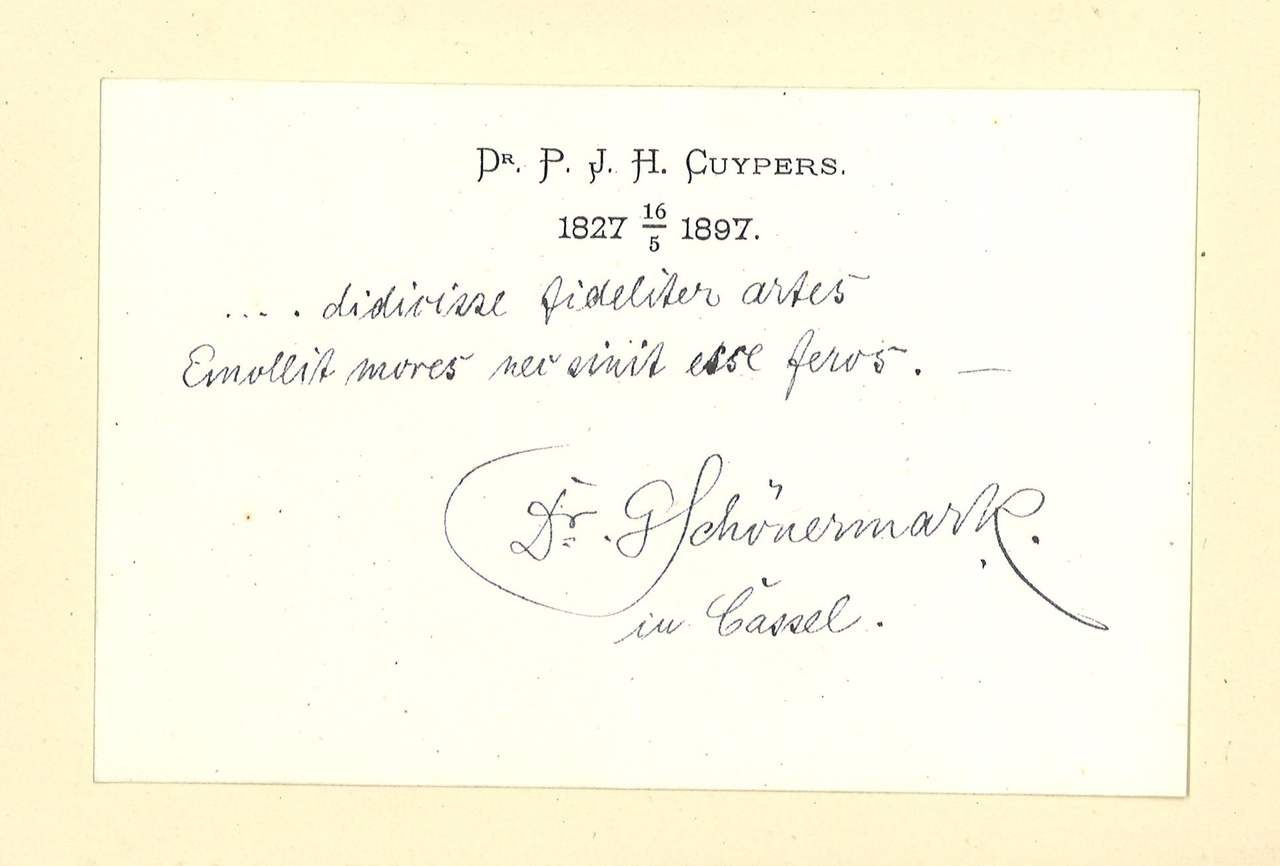 Dr. P. J. H. Cuypers.
1827 16/5 1897.
.... didicisse fideliter artes
Emollit mores nec sinit esse feros. —
Dr. G Schönermark.
in Cassel.